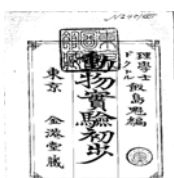 理學士
ドクトル 飯島魁編
動物實驗初步
東京 金港堂藏